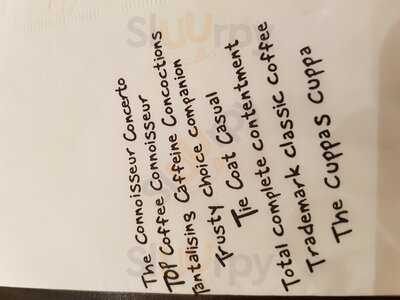 The Connoisseur Concerto
TOP Coffee Connoisseur
Tantalising Caffeine Concoctions
Trusty choice companion
Tie Coat Casual
Total complete contentment
Trademark classic coffee
The Cuppas Cuppa
Sluurpy
Sluurpy